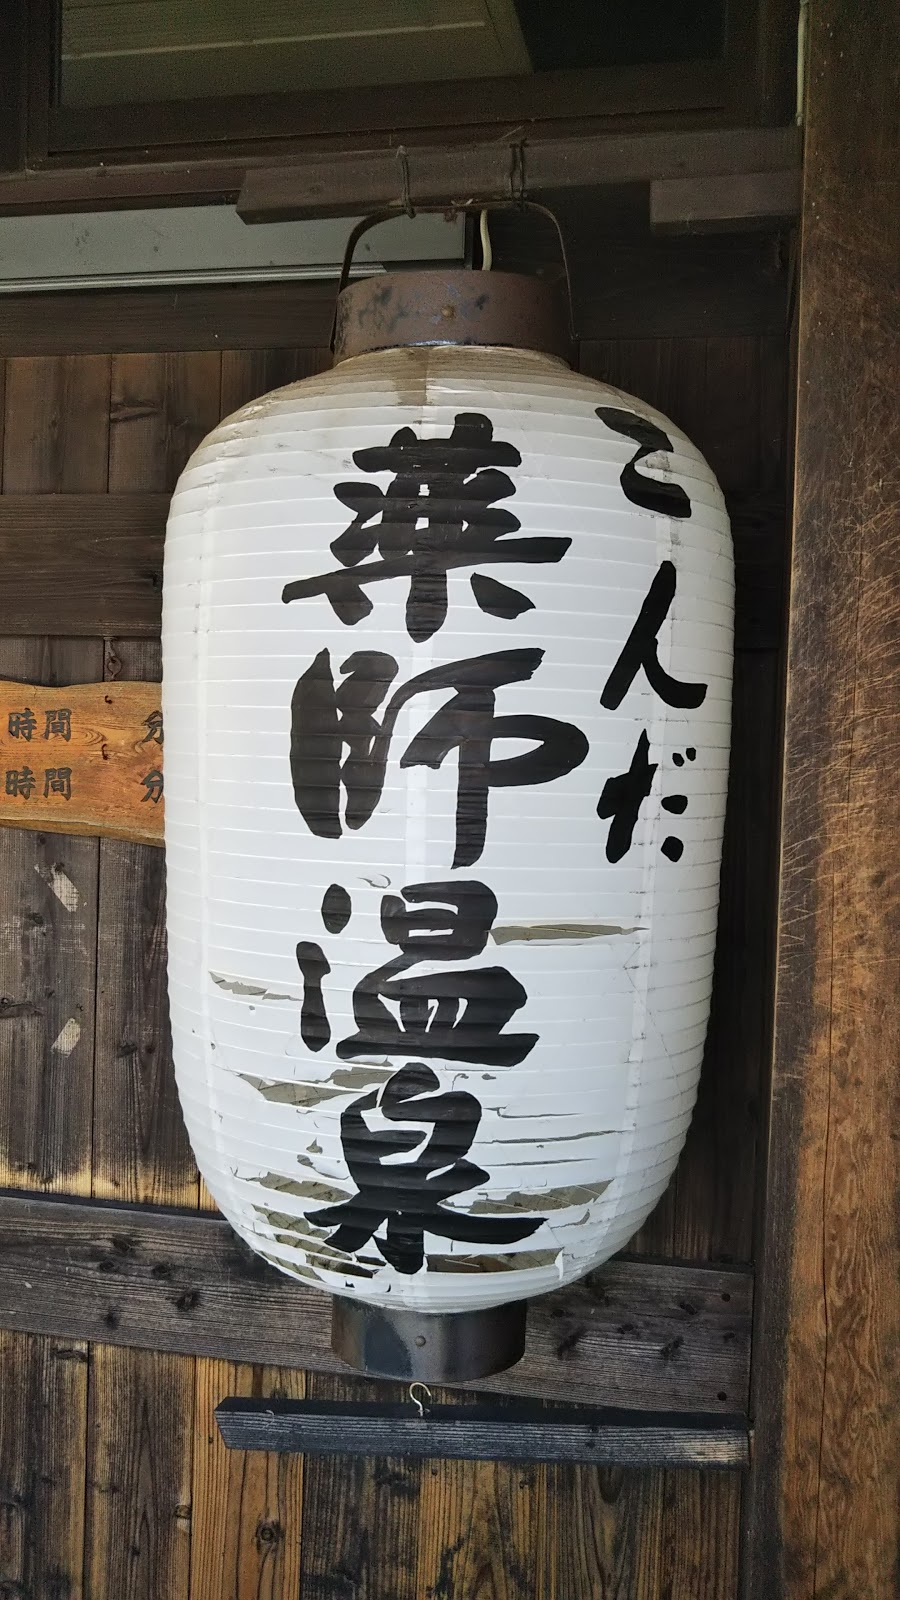 こんだ
薬師温泉
時間 分
時間 分